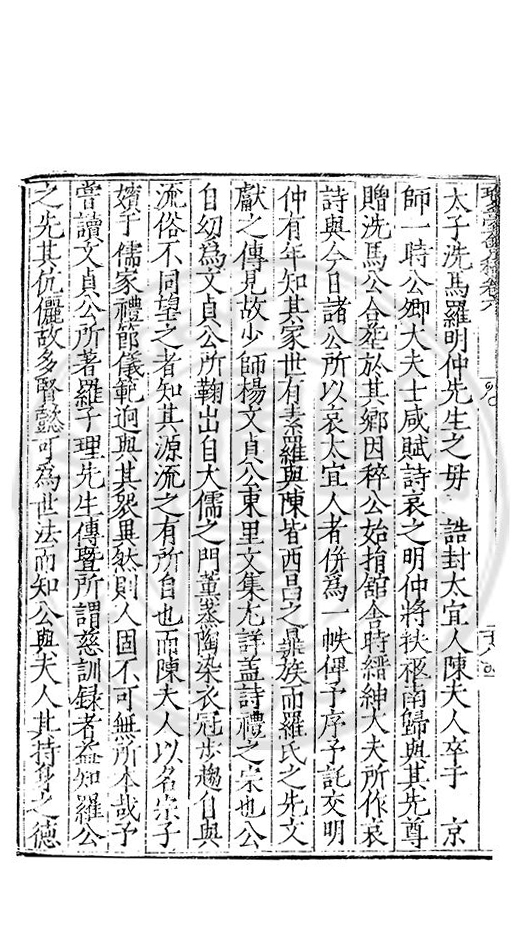 太子洗馬羅明仲先生之母 誥封太宜人陳夫人卒于 京
師一時公卿大夫士咸賦詩哀之明仲將扶柩南歸與其先尊
贈洗馬公合葬於其鄉因稡公始捐舘舎時縉紳大夫所作哀
詩與今日諸公所以哀太宜人者併爲一帙俾予序予託交明
仲有年知其家世有素羅與陳皆西昌之鼎族而羅氏之先文
獻之傳見故少師楊文貞公東里文集尤詳盖詩禮之宗也公
自幼爲文貞公所鞠出自大儒之門薫蒸陶染衣冠步趨自與
流俗不同望之者知其源流之有所自也而陳夫人以名宗子
嬪于儒家禮節儀範迥與其殺異然則人固不可無所本哉予
嘗讀文貞公所著羅子理先生傳曁所謂慈訓録者益知羅公
之先其伉儷故多賢懿可為世法而知公與夫人其持身之德